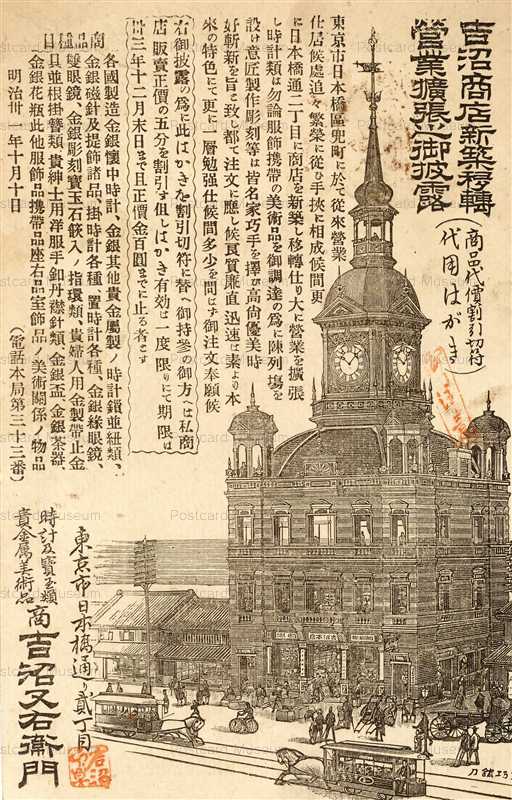 吉沼商店新築移轉
營業擴張幷御披露
（商品代價割引切符
代用はがき）
東京市日本橋區兜町に於て從來營業
仕居候處追々繁榮に從ひ手挾に相成候間更
に日本橋通二丁目に商店を新築し移轉仕り大に營業を擴張
し時計類は勿論服飾携帶の美術品を御調達の爲に陳列塲を
設け意匠製作彫刻等は皆名家巧手を擇び高尚優美時
好斬新を旨と致し都て注文に應し候良質廉直迅速は素より本
來の特色にて更に一層勉强仕候間多少を問はず御注文奉願候
右御披露の爲に此はかきを割引切符に替へ御持參の御方へは私商
店販賣正價の五分を割引す但しはかき有効は一度限りにて期限は
卅三年十二月末日まで且正價金百圓までに止る者とす
商品種目
各國製造金銀懷中時計、金銀其他貴金屬製ノ時計鎖並紐類、
金銀磁針及提飾諸品、掛時計各種、置時計各種、金銀緣眼鏡、
雙眼鏡、金銀彫刻寶玉石篏入ノ指環類、貴婦人用金製帶止金
具並根掛簪類、貴紳士用洋服手釦丹襟針類、金銀盃、金銀茶器、
金銀花瓶此他服飾品携帶品座右品室飾品ノ美術關係ノ物品
明治卅一年十月十日
（電話本局第三十三番）
東京市日本橋通り貳丁目
時計及寶玉類
貴金属美術品
商 吉沼又右衞門
Postcard Museum